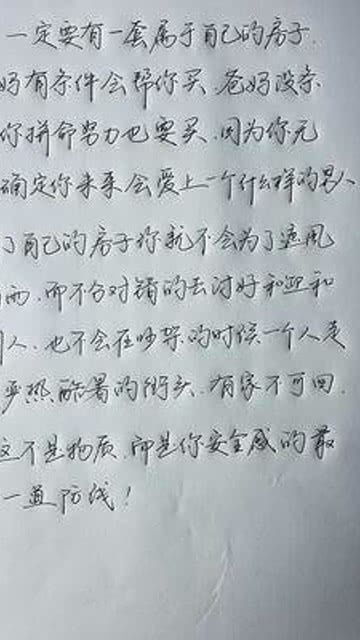 一定要有一套属于自己的房子.
妈有条件会帮你买.爸妈没条
你拼命努力也要买.因为你无
确定你未来会爱上一个什么样的男人
了自己的房子你就不会为了遮风
雨.而不分对错的去讨好和迎和
别人.也不会在吵架的时候一个人走
严热酷暑的街头.有家不可回.
这不是物质.而是你安全感的最
一道防线!